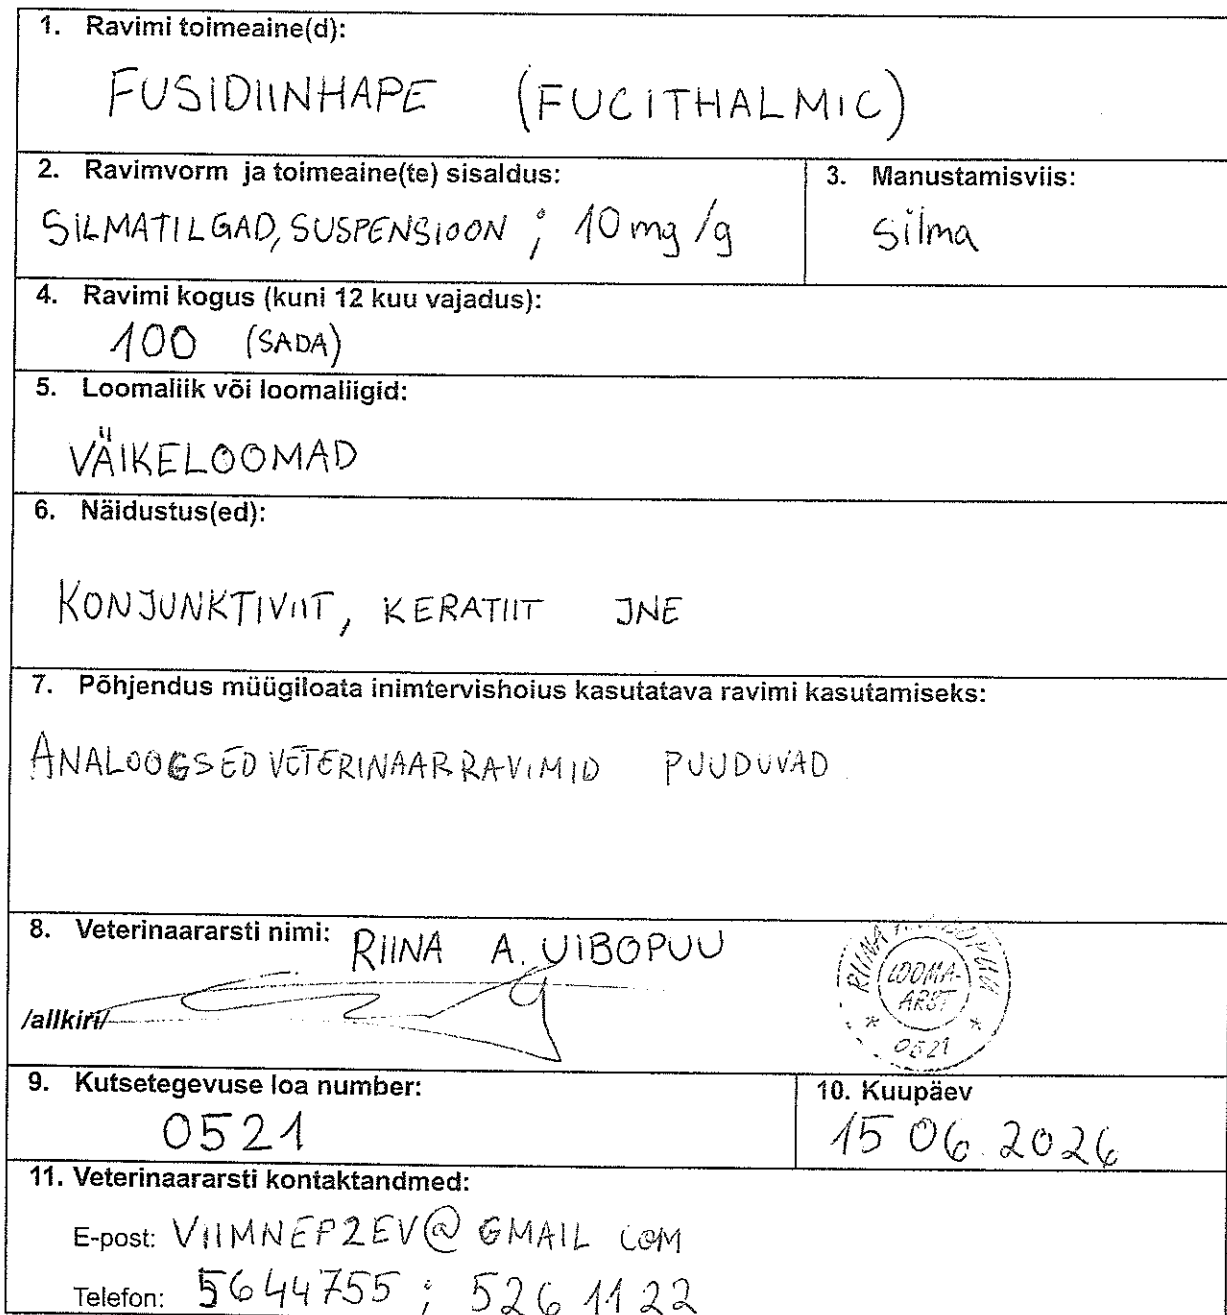 1. Ravimi toimeaine(d):
FUSIDIINHAPE (FUCITHALMIC)
2. Ravimvorm ja toimeaine(te) sisaldus:
SILMATILGAD, SUSPENSIOON ; 10 mg/g
3. Manustamisviis:
silma
4. Ravimi kogus (kuni 12 kuu vajadus):
100 (SADA)
5. Loomaliik või loomaliigid:
VÄIKELOOMAD
6. Näidustus(ed):
KONJUNKTIVIIT, KERATIIT JNE
7. Põhjendus müügiloata inimtervishoius kasutatava ravimi kasutamiseks:
ANALOOGSED VETERINAARRAVIMID PUUDUVAD
8. Veterinaararsti nimi: RIINA A. UIBOPUU
/allkiri/
RIINA A. UIBOPUU
LOOMA-
ARST
* 0521 *
9. Kutsetegevuse loa number:
0521
10. Kuupäev
15 06. 2026
11. Veterinaararsti kontaktandmed:
E-post: VIIMNEP2EV@GMAIL COM
Telefon: 5644755 ; 526 1122